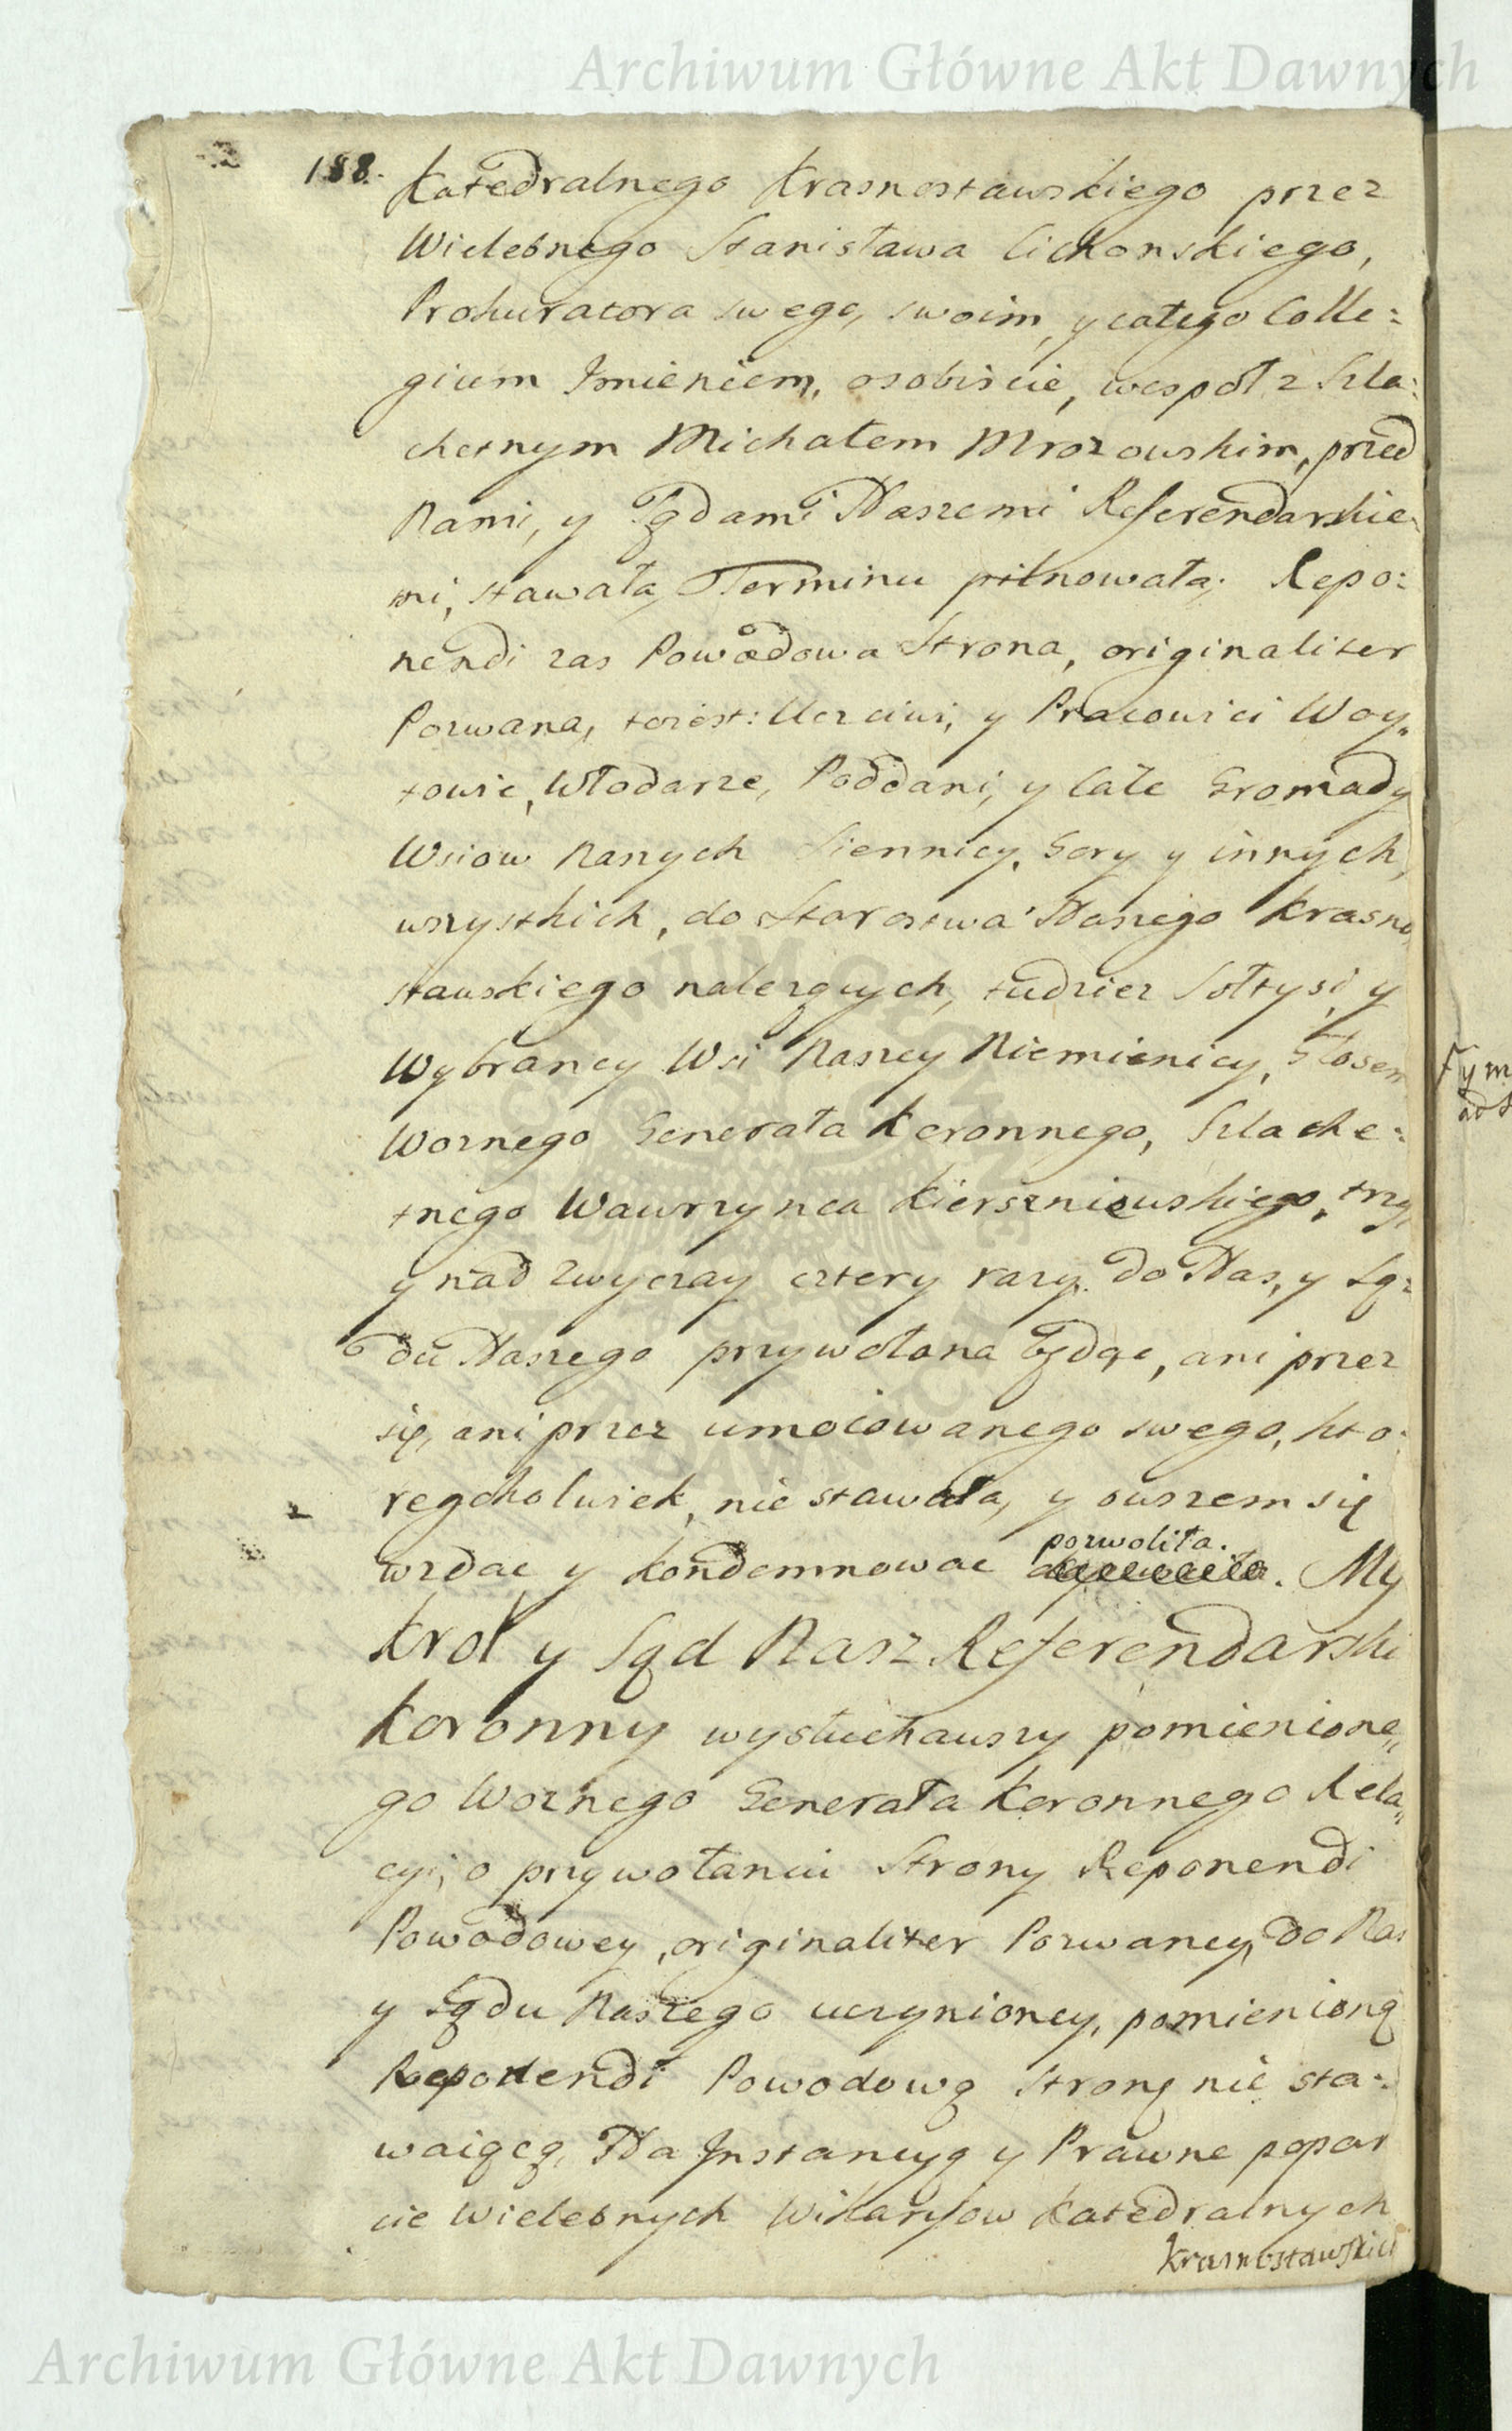 Archiwum Główne Akt Dawnych
188.
Katedralnego Krasnostawskiego przez
Wielebnego Stanisława Cichonskiego,
Prokuratora swego, swoim, y całego Colle:
gium Imieniem, osobiscie, wespoł z Szla:
chetnym Michałem Mrozowskim, przed
Nami, y Sądami Naszemi Referendarskie:
mi, stawała, Terminu pilnowała; Repo:
nendi zas Powodowa Strona, originaliter
Pozwana, toiest: Uczciwi, y Pracowici Woy:
towie, Włodarze, Poddani, y Całe Gromady
Wsiow Nanych Siennicy, Gory y innych,
wszystkich, do Starostwa Naszego Krasno
stawskiego nalezących, tudziez Sołtysi, y
Wybrancy Wsi Naszey Niemienicy, Głosem
Woznego Generała Koronnego, Szlache:
tnego Wawrzynca Kierszniewskiego, trzy,
y nad zwyczay cztery razy do Nas, y Są:
du Naszego przywołana będąc, ani przez
się, ani przez umocowanego swego, kto:
regokolwiek, nie stawała, y owszem się
wzdac y kondemnowac pozwoliła. My
Krol y Sąd Nasz Referendarski
Koronny wysłuchawszy pomienione„
go Woznego Generała Koronnego Rela„
cyi, o przywołaniu Strony Reponendi
Powodowey, originaliter Pozwaney, do Nas
y Sądu Naszego uczynioney, pomienioną
Reponendi Powodową Stronę nie sta:
waiącą, Na Instancyą y Prawne popar
cie Wielebnych Wikaryow Katedralnych
Krasnostawskich
Archiwum Główne Akt Dawnych